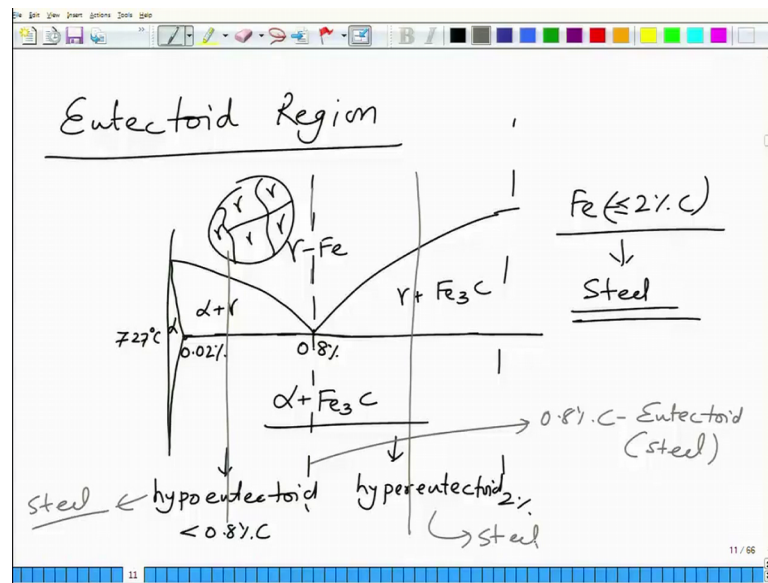 File Edit View Insert Actions Tools Help
B I
Eutectoid Region
γ γ
γ γ γ
γ-Fe
Fe (≤2% C)
Steel
α+γ
γ + Fe3C
α
727°C
0.02%
0.8%
α+Fe3C
0.8% C - Eutectoid
(steel)
steel ← hypoeutectoid
hypereutectoid
2%
< 0.8% C
steel
11 / 66
11